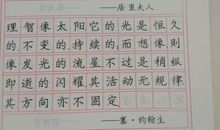 ——居里夫人
理智像太阳它的光是恒久
的不变的持续的而想像则
像发光的流星不过是稍纵
即逝的闪耀其活动无规律
其方向亦不固定
——塞·约翰生